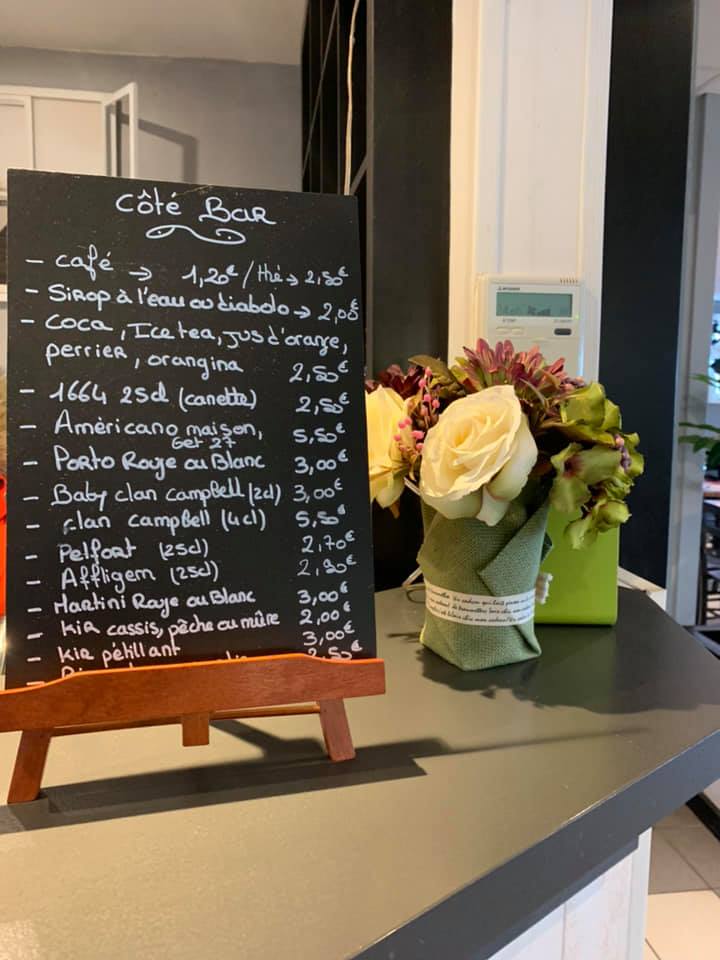 Côté Bar
- café → 1,20€ / thé → 2,50€
- Sirop à l'eau ou diabolo → 2,00€
- Coca, Ice tea, jus d'orange,
perrier, orangina 2,50€
- 1664 25cl (canette) 2,50€
- Américano maison, 5,50€
Get 27
- Porto Rouge ou Blanc 3,00€
- Baby clan campbell (2cl) 3,00€
- clan campbell (4cl) 5,50€
- Pelfort (25cl) 2,70€
- Affligem (25cl) 2,90€
- Martini Rouge ou Blanc 3,00€
- kir cassis, pêche ou mûre 2,00€
- kir pétillant 3,00€
2,50€